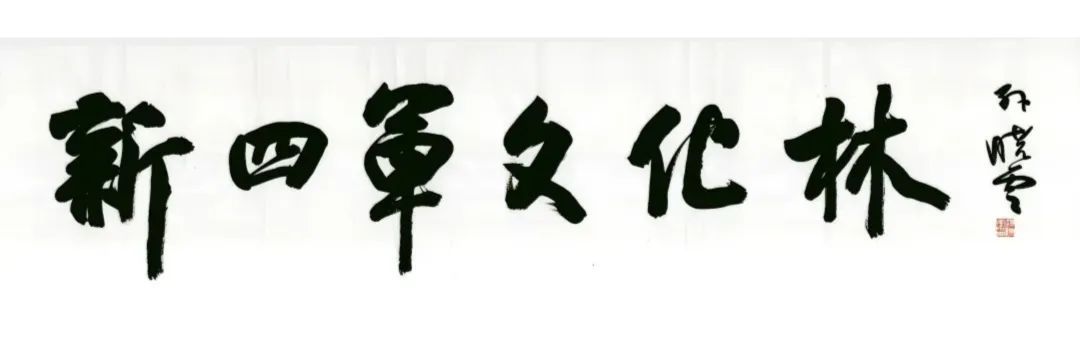 新四軍文化林
孙晓云